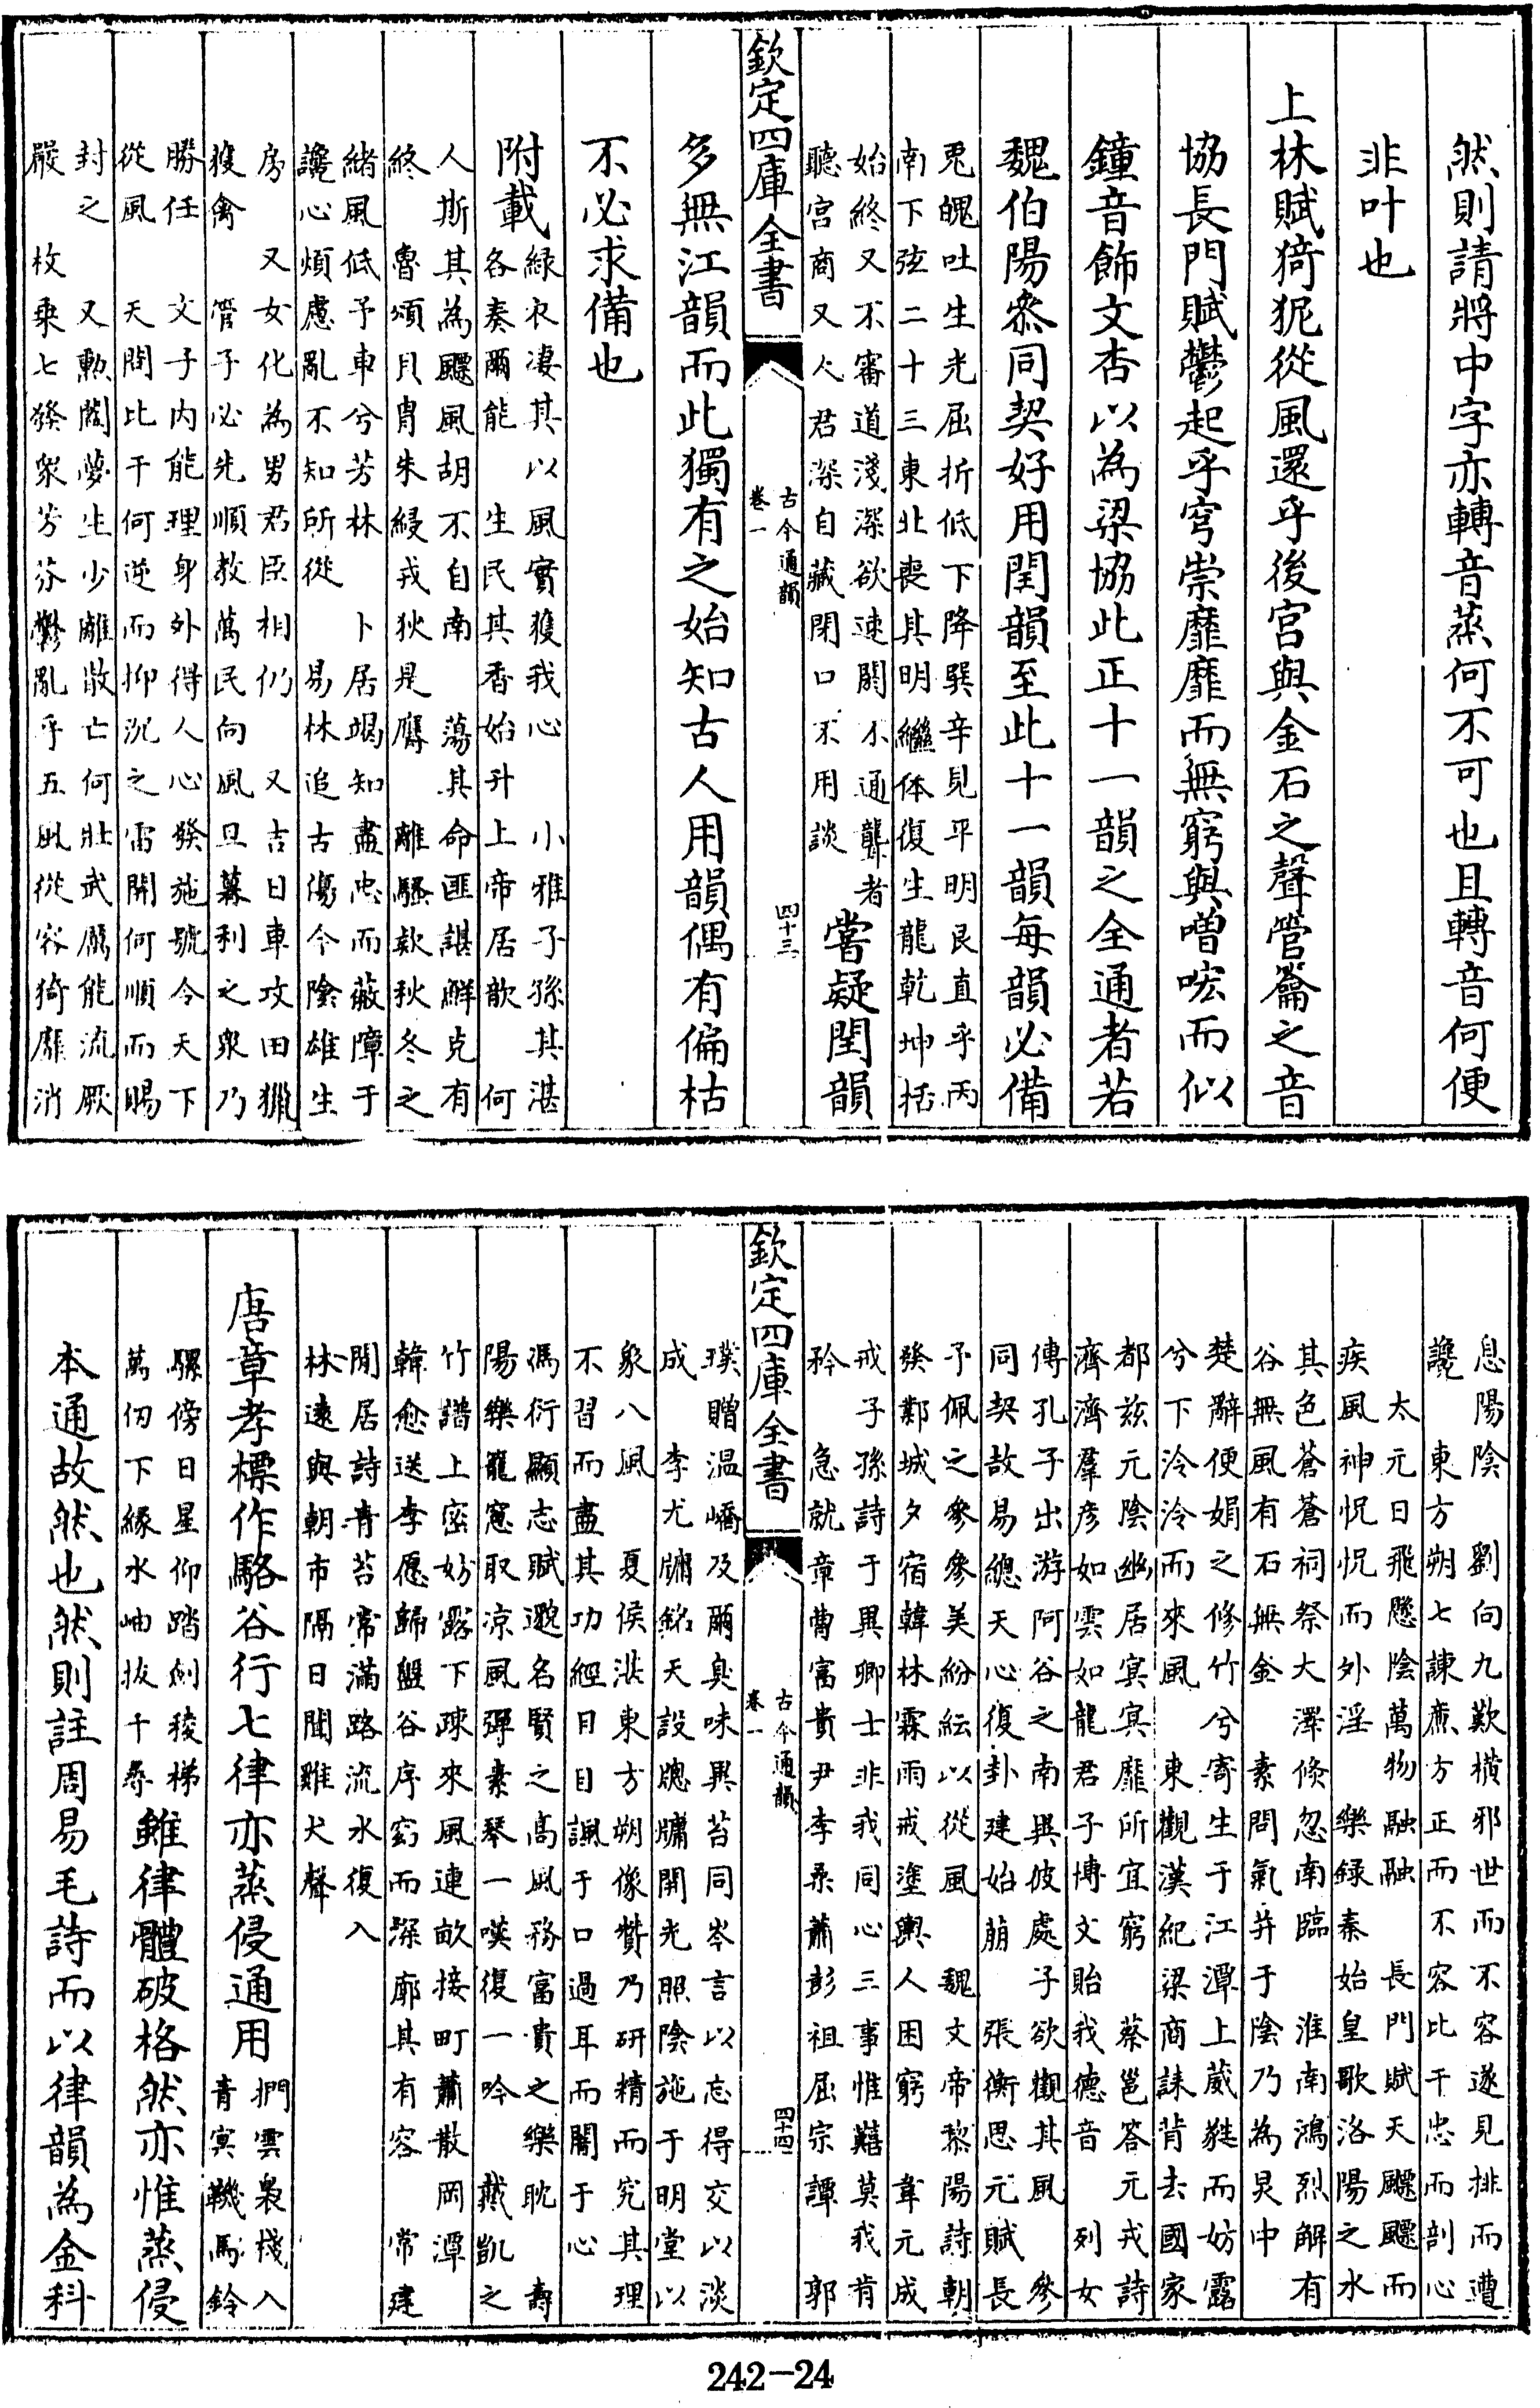 然則請將中字亦轉音蒸何不可也且轉音何便
非叶也
上林賦猗狔從風還乎後宮與金石之聲管籥之音
協長門賦鬱起乎穹崇靡靡而無窮與噌吰而似
鐘音飾文杏以為梁協此正十一韻之全通者若
魏伯陽參同契好用閏韻至此十一韻每韻必備
兎魄吐生光屈折低下降巽辛見平明艮直乎丙
南下弦二十三東北喪其明繼体復生龍乾坤括
始終又不審道淺深欲速閼不通聾者
聽宫商又人君深自藏閉口不用談
嘗疑閏韻
欽定四庫全書
古今通韻
卷一
四十三
多無江韻而此獨有之始知古人用韻偶有偏枯
不必求備也
附載
緑衣凄其以風實獲我心 小雅子孫其湛
各奏爾能 生民其香始升上帝居歆 何
人斯其為飄風胡不自南 蕩其命匪諶鮮克有
終 魯頌貝胄朱綅戎狄是膺 離騷欸秋冬之
緒風低予車兮芳林 卜居竭知盡忠而蔽障于
讒心煩慮亂不知所從 易林追古傷今陰雄生
房 又女化為男君臣相仍 又吉日車攻田獵
獲禽 管子必先順教萬民向風旦暮利之衆乃
勝任 文子内能理身外得人心發施號令天下
從風 天問比干何逆而抑沉之雷開何順而賜
封之 又勲闔夢生少離散亡何壯武厲能流厥
嚴 枚乗七發衆芳芬鬱亂乎五風從容猗靡消
息陽陰 劉向九歎横邪世而不容遂見排而遭
讒 東方朔七諫廉方正而不容比干忠而剖心
太元日飛懸陰萬物融融 長門賦天飄飄而
疾風神怳怳而外淫 樂録秦始皇歌洛陽之水
其色蒼蒼祠祭大澤倏忽南臨 淮南鴻烈解有
谷無風有石無金 素問氣并于陰乃為炅中
楚辭便娟之修竹兮寄生于江潭上葳蕤而妨露
兮下泠泠而來風 東觀漢紀梁商誄背去國家
都兹元陰幽居冥冥靡所宜窮 蔡邕答元戎詩
濟濟羣彦如雲如龍君子博文貽我德音 列女
傳孔子出游阿谷之南與彼處子欲觀其風 參
同契故易總天心復卦建始萠 張衡思元賦長
予佩之參參美紛紜以從風 魏文帝黎陽詩朝
發鄴城夕宿韓林霖雨戒塗輿人困窮 韋元成
戒子孫詩于異卿士非我同心三事惟囏莫我肯
矜 急就章曹富貴尹李桑蕭彭祖屈宗譚 郭
欽定四庫全書
古今通韻
卷一
四十四
璞贈温嶠及爾臭味異苔同岑言以忘得交以淡
成 李尤牗銘天設牕牗開光照陰施于明堂以
象八風 夏侯湛東方朔像贊乃研精而究其理
不習而盡其功經目目諷于口過耳而闇于心
馮衍顯志賦邀名賢之高風務富貴之樂耽 壽
陽樂籠窓取凉風彈素琴一嘆復一吟 戴凱之
竹譜上密妨露下疎來風連畝接町蕭散岡潭
韓愈送李愿歸盤谷序窈而深廓其有容 常建
閒居詩青苔常滿路流水復入
林遠與朝市隔日聞雞犬聲
唐章孝標作駱谷行七律亦蒸侵通用
捫雲裊棧入
青冥鞿馬鈴
騾傍日星仰踏劍稜梯
萬仞下緣水岫拔千尋
雖律體破格然亦惟蒸侵
本通故然也然則註周易毛詩而以律韻為金科
242-24